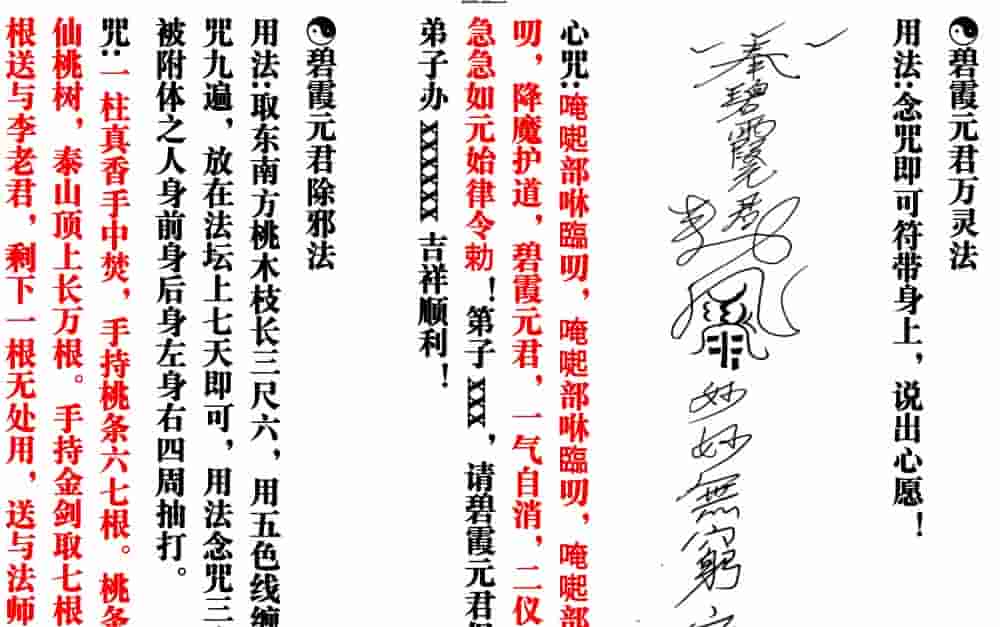 ☯碧霞元君万灵法
用法:念咒即可符带身上,说出心愿!
奉碧霞元君
妙妙無窮
心咒:唵啒部咻臨叨,唵啒部咻臨叨,唵啒部
叨,降魔护道,碧霞元君,一气自消,二仪
急急如元始律令勅!第子XXX,请碧霞元君
弟子办XXXXXX吉祥顺利!
☯碧霞元君除邪法
用法:取东南方桃木枝长三尺六,用五色线缠
咒九遍,放在法坛上七天即可,用法念咒三
被附体之人身前身后身左身右四周抽打。
咒:一柱真香手中焚,手持桃条六七根。桃条
仙桃树,泰山顶上长万根。手持金剑取七根
根送与李老君,剩下一根无处用,送与法师